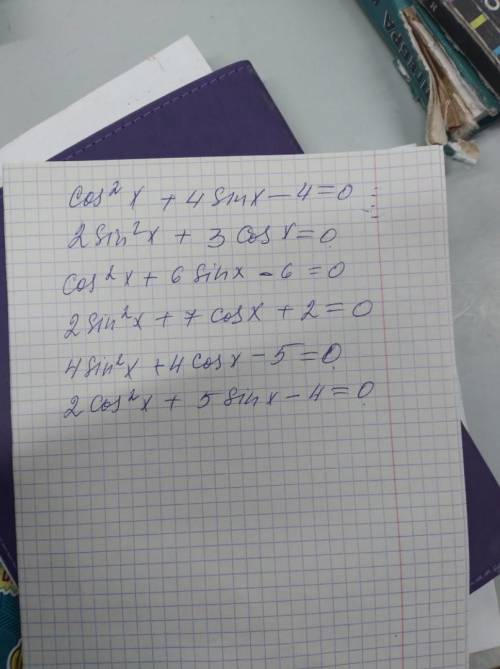 cos²x + 4 sinx - 4 = 0
2 sin²x + 3 cosx = 0
cos²x + 6 sinx - 6 = 0
2 sin²x + 7 cosx + 2 = 0
4 sin²x + 4 cosx - 5 = 0
2 cos²x + 5 sinx - 4 = 0